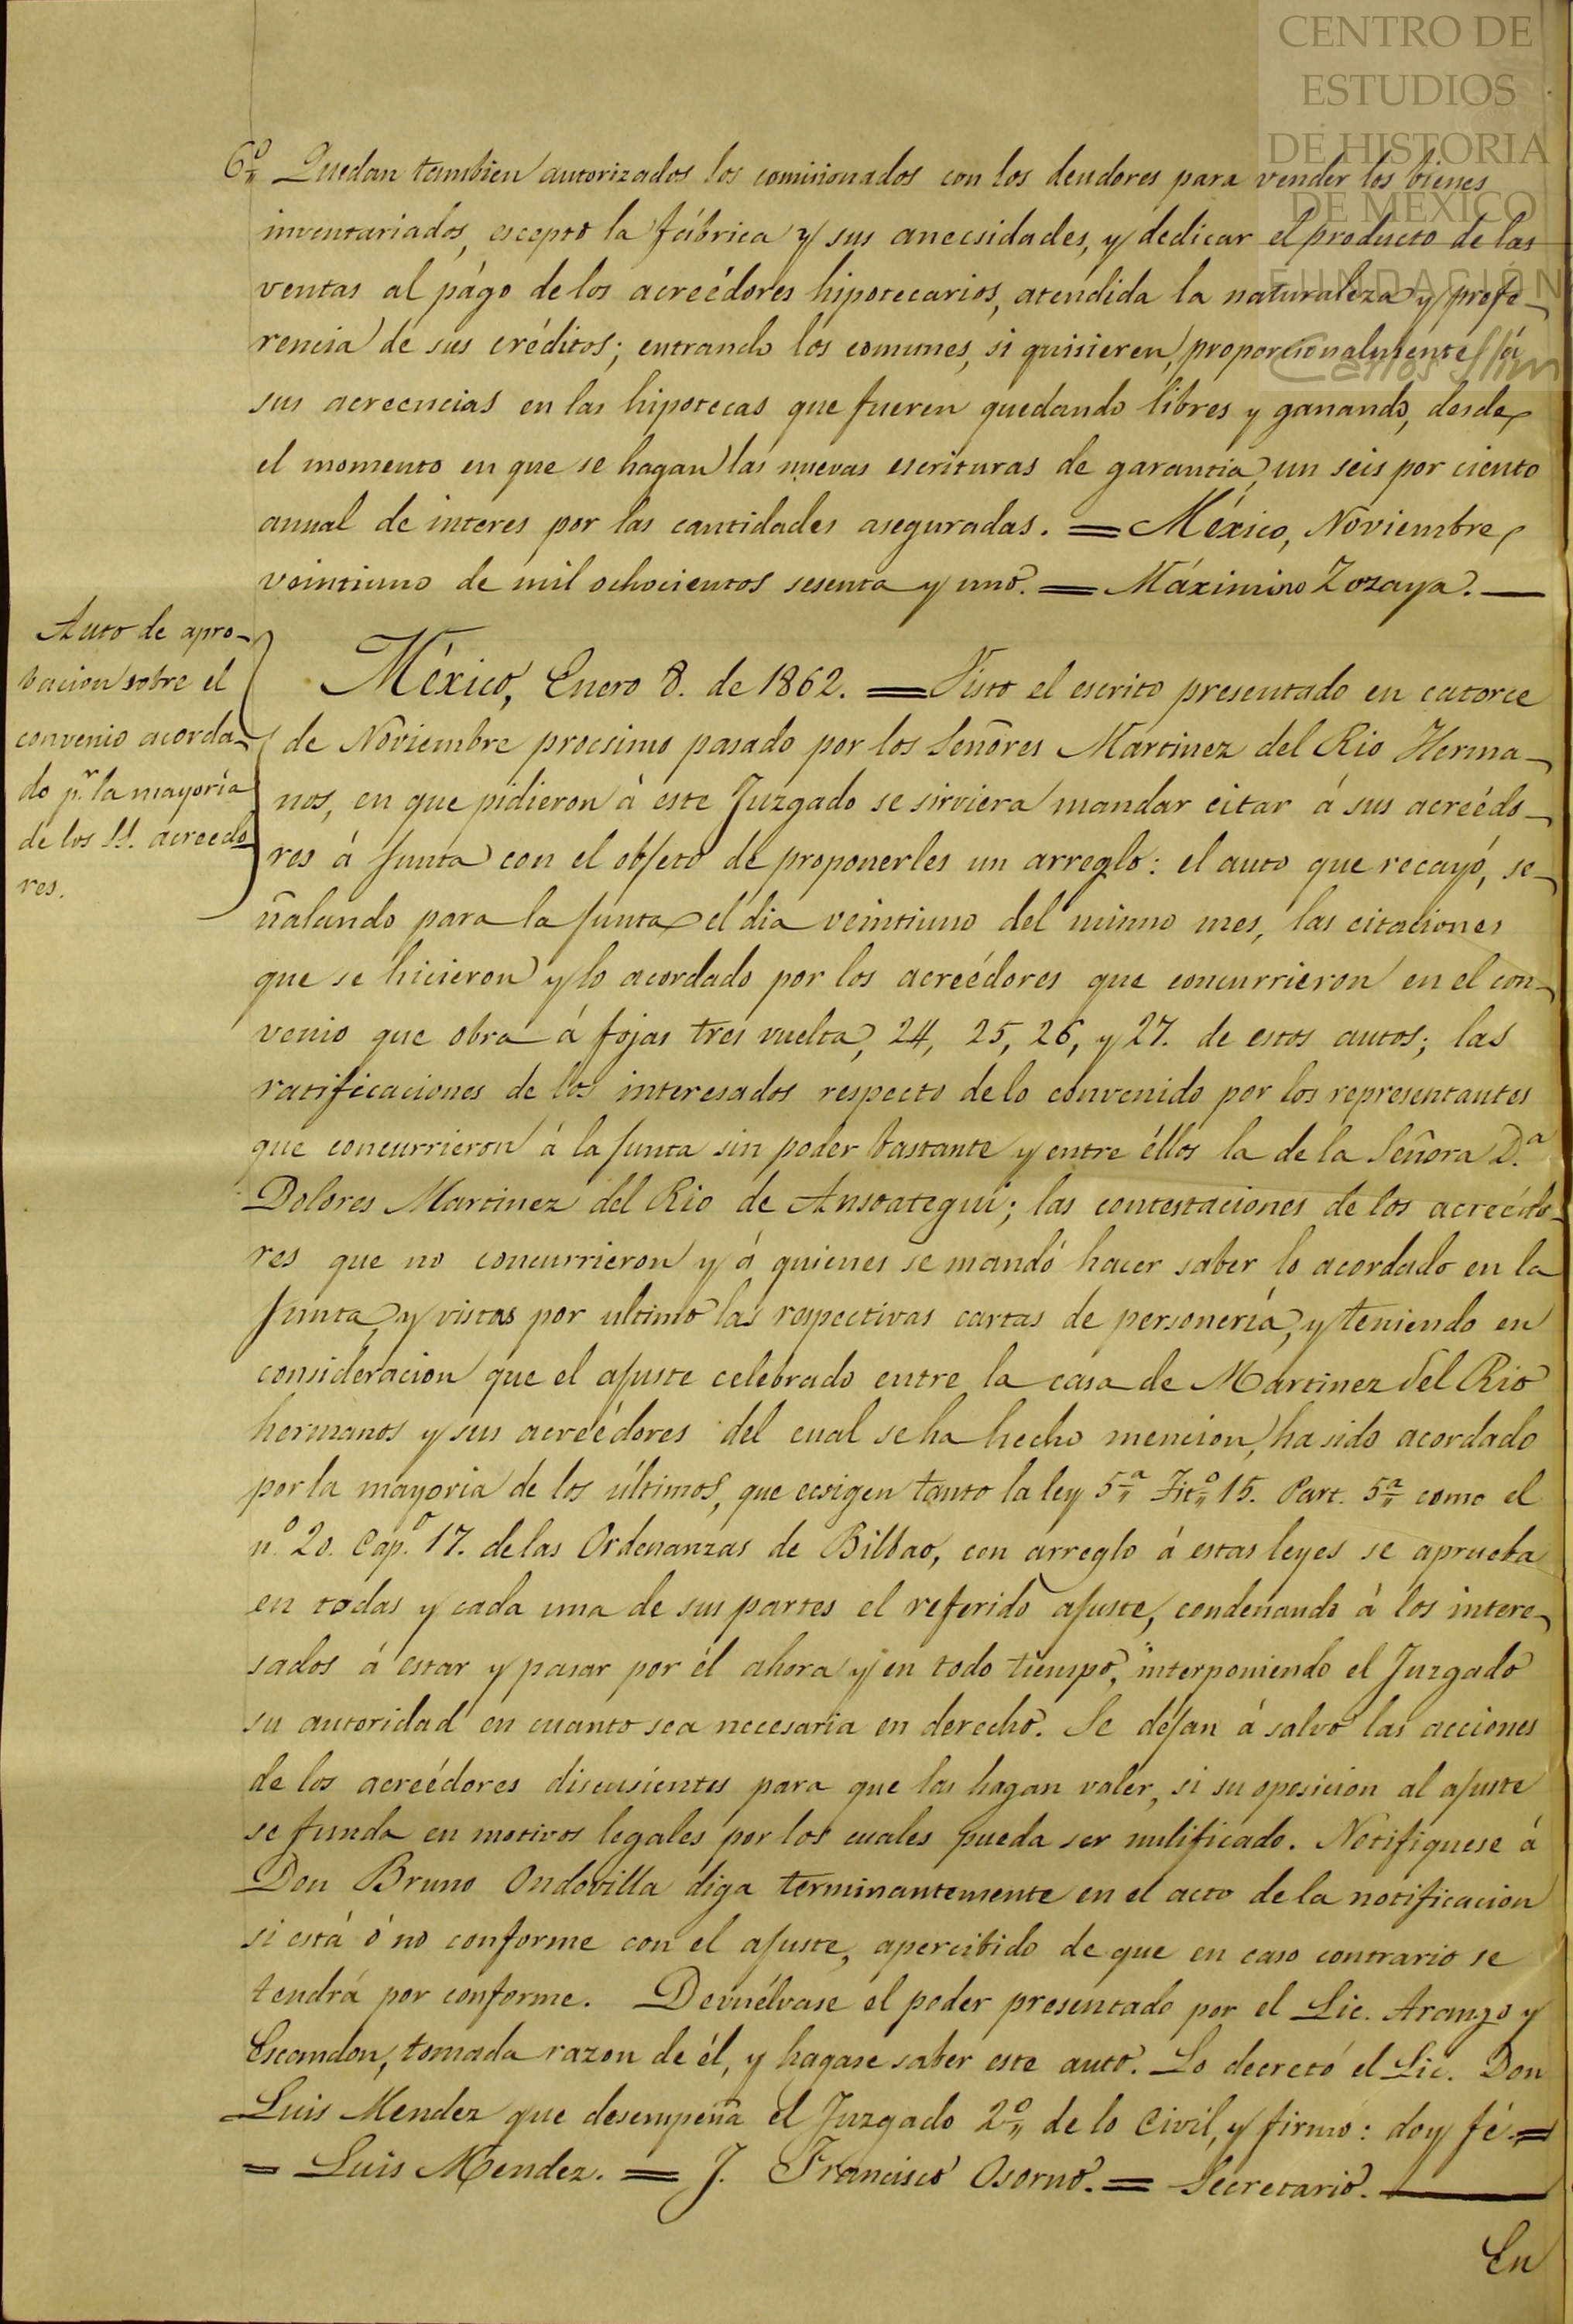 CENTRO DE
ESTUDIOS
DE HISTORIA
DE MÉXICO
FUNDACIÓN
Carlos Slim
6º Quedan tambien autorizados los comisionados con los deudores para vender los bienes
inventariados, escepto la fábrica y sus anecsidades, y dedicar el producto de las
ventas al págo de los acreédores hipotecarios, atendida la naturaleza y prefe-
rencia de sus créditos; entrando los comunes, si quisieren, proporcionalmente á
sus acreencias en las hipotecas que fueren quedando libres y ganando, desde
el momento en que se hagan las nuevas escrituras de garantia, un seis por ciento
anual de interes por las cantidades aseguradas. = México, Noviembre
veintiuno de mil ochocientos sesenta y uno. = Máximino Zozaya. —
Auto de apro-
bacion sobre el
convenio acorda-
do p.r la mayoría
de los SS. acreedo-
res.
México, Enero 8. de 1862. = Visto el escrito presentado en catorce
de Noviembre procsimo pasado por los Señores Martinez del Rio Herma-
nos, en que pidieron á este Juzgado se sirviera mandar citar á sus acreédo-
res á Junta con el objeto de proponerles un arreglo: el auto que recayó, se-
ñalando para la Junta el dia veintiuno del mismo mes, las citaciones
que se hicieron y lo acordado por los acreédores que concurrieron en el con-
venio que obra á fojas tres vuelta, 24, 25, 26, y 27. de estos autos; las
ratificaciones de los interesados respecto de lo convenido por los representantes
que concurrieron á la Junta sin poder bastante y entre éllos la de la Señora D.a
Dolores Martinez del Rio de Ansoategui; las contestaciones de los acreédo-
res que no concurrieron y á quienes se mandó hacer saber lo acordado en la
Junta, y vistas por ultimo las respectivas cartas de personería, y teniendo en
consideracion que el ajuste celebrado entre la casa de Martinez del Rio
hermanos y sus acreédores del cual se ha hecho mencion, ha sido acordado
por la mayoria de los últimos, que ecsigen tanto la ley 5ª Titº 15. Part. 5ª como el
n.º 20. Cap.º 17. de las Ordenanzas de Bilbao, con arreglo á estas leyes se aprueba
en todas y cada una de sus partes el referido ajuste, condenando á los intere-
sados á estar y pasar por él ahora y en todo tiempo, interponiendo el Juzgado
su autoridad en cuanto sea necesaria en derecho. Se dejan á salvo las acciones
de los acreédores discusientes para que las hagan valer, si su oposicion al ajuste
se funda en motivos legales por los cuales pueda ser nulificado. Notifiquese á
Don Bruno Ondovilla diga terminantemente en el acto de la notificacion
si está ó no conforme con el ajuste, apercibido de que en caso contrario se
tendrá por conforme. Devuélvase el poder presentado por el Lic. Arango y
Escandon, tomada razon de él, y hagase saber este auto. Lo decretó el Lic. Don
Luis Mendez que desempeña el Juzgado 2º de lo Civil, y firmó: doy fé. =
= Luis Mendez. = J. Francisco Osorno. = Secretario. —
En